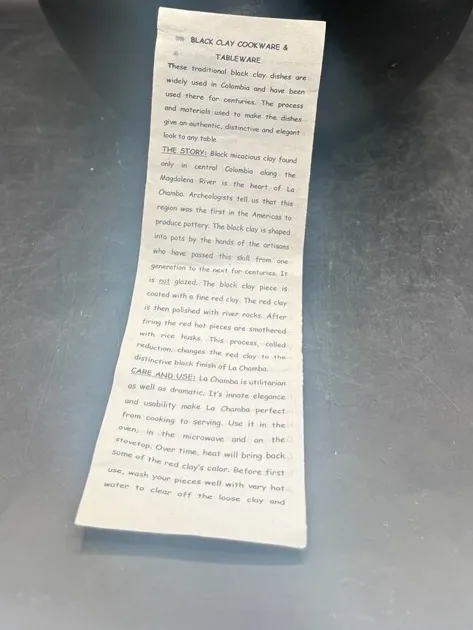 BLACK CLAY COOKWARE &
TABLEWARE
These traditional black clay dishes are
widely used in Colombia and have been
used there for centuries. The process
and materials used to make the dishes
give an authentic, distinctive and elegant
look to any table.
THE STORY: Black micacious clay found
only in central Colombia along the
Magdalena River is the heart of La
Chamba. Archeologists tell us that this
region was the first in the Americas to
produce pottery. The black clay is shaped
into pots by the hands of the artisans
who have passed this skill from one
generation to the next for centuries. It
is not glazed. The black clay piece is
coated with a fine red clay. The red clay
is then polished with river rocks. After
firing the red hot pieces are smothered
with rice husks. This process, called
reduction, changes the red clay to the
distinctive black finish of La Chamba.
CARE AND USE: La Chamba is utilitarian
as well as dramatic. It's innate elegance
and usability make La Chamba perfect
from cooking to serving. Use it in the
oven, in the microwave and on the
stovetop. Over time, heat will bring back
some of the red clay's color. Before first
use, wash your pieces well with very hot
water to clear off the loose clay and